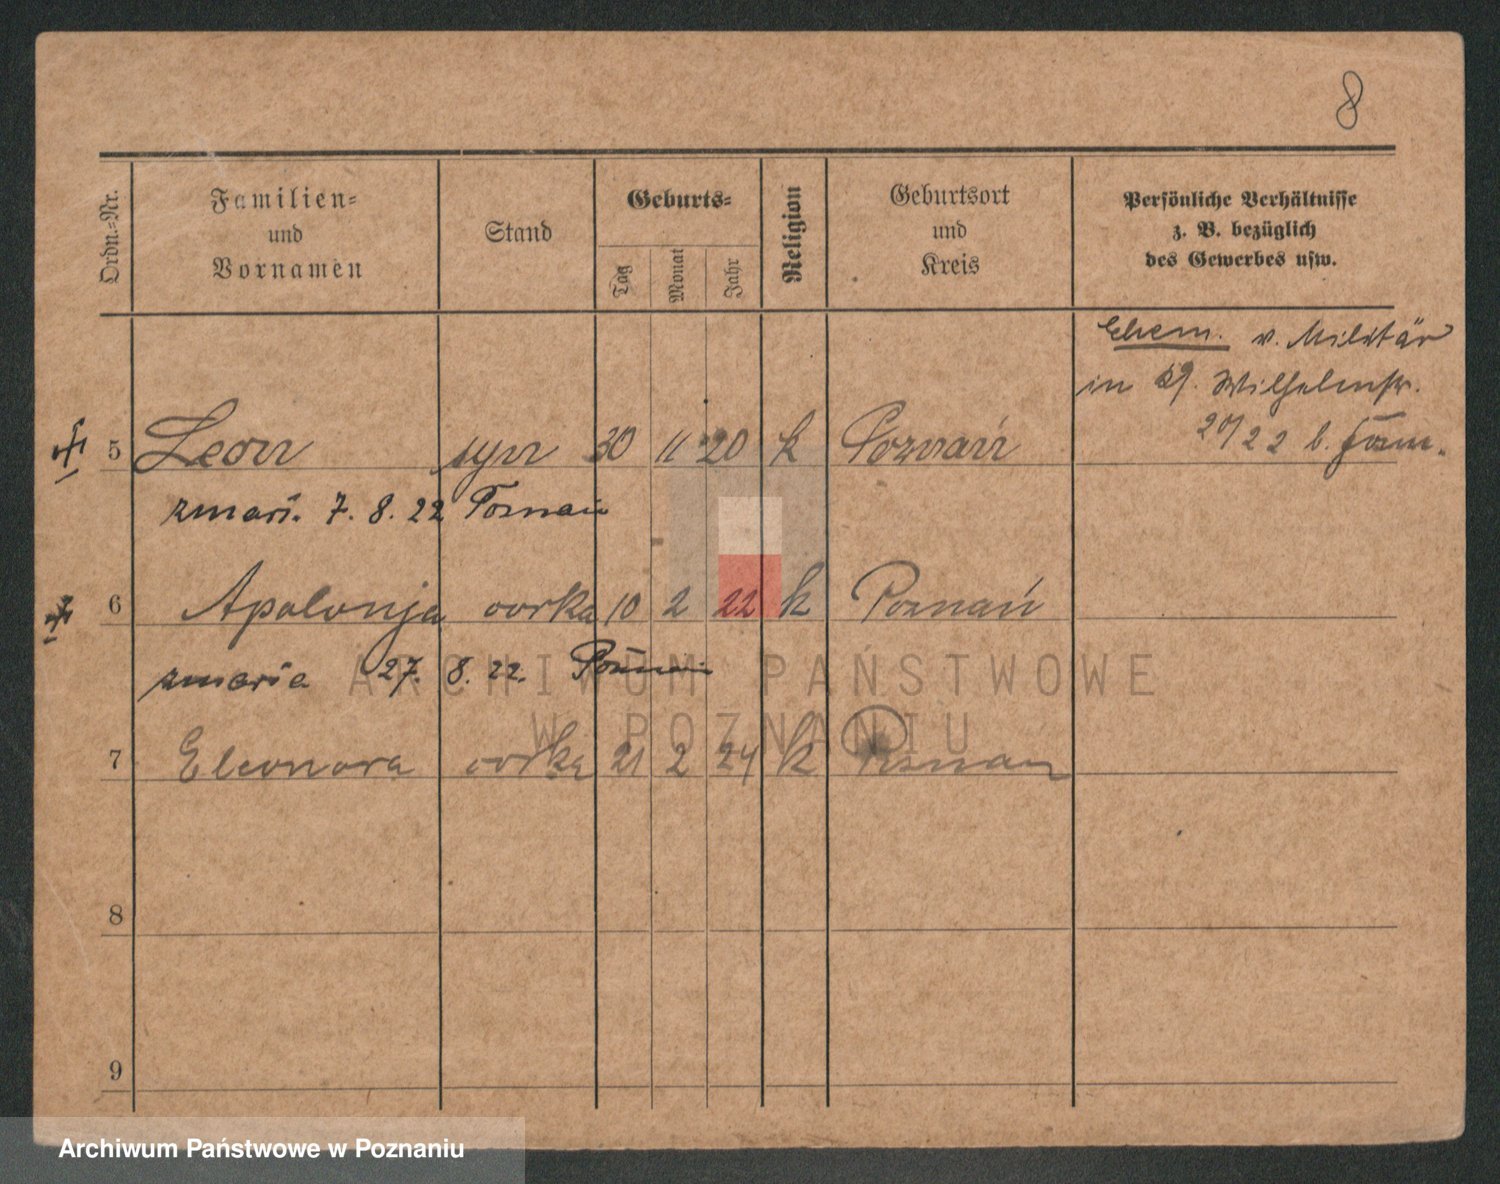 8
Ordn.=Nr.
Familien=
und
Vornamen
Stand
Geburts=
Tag
Monat
Jahr
Religion
Geburtsort
und
Kreis
Persönliche Verhältnisse
z. B. bezüglich
des Gewerbes usw.
Ehem. v. Militär
in 29. Wilhelmstr.
22 b.
5 Leon syn 30 11 20 k Poznań
zmarł. 7. 8. 22 Poznań
6 Apolonja córka 10 2 22 k Poznań
zmarła 27. 8. 22. Poznań
7 Eleonora córka 21 2 24 k Poznań
8
9
ARCHIWUM PAŃSTWOWE
W POZNANIU
Archiwum Państwowe w Poznaniu